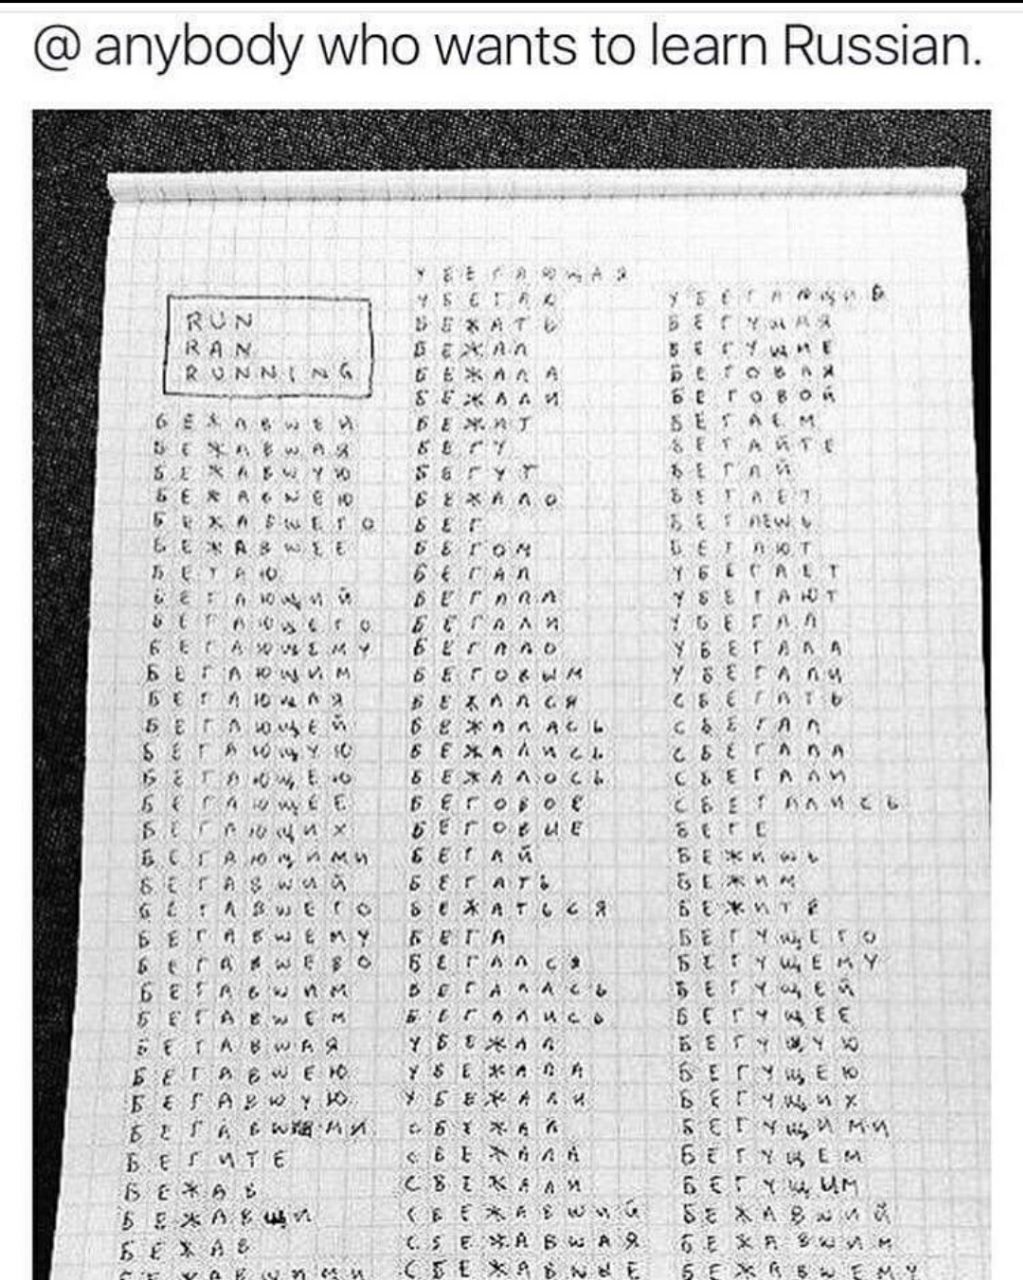 @ anybody who wants to learn Russian.
RUN
RAN
RUNNING
БЕЖАВШЕЙ
БЕЖАВШАЯ
БЕЖАВШУЮ
БЕЖАВШЕЮ
БЕЖАВШЕГО
БЕЖАВШЕЕ
БЕГАЮ
БЕГАЮЩИЙ
БЕГАЮЩЕГО
БЕГАЮЩЕМУ
БЕГАЮЩИМ
БЕГАЮЩАЯ
БЕГАЮЩЕЙ
БЕГАЮЩУЮ
БЕГАЮЩЕЮ
БЕГАЮЩЕЕ
БЕГАЮЩИХ
БЕГАЮЩИМИ
БЕГАВШИЙ
БЕГАВШЕГО
БЕГАВШЕМУ
БЕГАВШЕВО
БЕГАВШИМ
БЕГАВШЕМ
БЕГАВШАЯ
БЕГАВШЕЮ
БЕГАВШУЮ
БЕГАВШИМИ
БЕГИТЕ
БЕЖАВ
БЕЖАВШИ
БЕЖАВ
УБЕГАЮЩАЯ
УБЕГАЮ
БЕЖАТЬ
БЕЖАЛ
БЕЖАЛА
БЕЖАЛИ
БЕЖИТ
БЕГУ
БЕГУТ
БЕЖАЛО
БЕГ
БЕГОМ
БЕГАЛ
БЕГАЛА
БЕГАЛИ
БЕГАЛО
БЕГОВЫМ
БЕЖАЛСЯ
БЕЖАЛАСЬ
БЕЖАЛИСЬ
БЕЖАЛОСЬ
БЕГОВОЕ
БЕГОВЫЕ
БЕГАЙ
БЕГАТЬ
БЕЖАТЬСЯ
БЕГА
БЕГАЛСЯ
БЕГАЛАСЬ
БЕГАЛИСЬ
УБЕЖАЛ
УБЕЖАЛА
УБЕЖАЛИ
СБЕЖАЛ
СБЕЖАЛА
СБЕЖАЛИ
СБЕЖАВШИЙ
СБЕЖАВШАЯ
СБЕЖАВШИЕ
БЕГУЩАЯ
БЕГУЩИЕ
БЕГОВАЯ
БЕГОВОЙ
БЕГАЕМ
БЕГАЙТЕ
БЕГАЙ
БЕГАЕТ
БЕГАЕШЬ
БЕГАЮТ
УБЕГАЕТ
УБЕГАЮТ
УБЕГАЛ
УБЕГАЛА
УБЕГАЛИ
СБЕГАТЬ
СБЕГАЛ
СБЕГАЛА
СБЕГАЛИ
СБЕГАЛИСЬ
БЕГЕ
БЕЖИШЬ
БЕЖИМ
БЕЖИТЕ
БЕГУЩЕГО
БЕГУЩЕМУ
БЕГУЩЕЙ
БЕГУЩЕЕ
БЕГУЩУЮ
БЕГУЩЕЮ
БЕГУЩИХ
БЕГУЩИМИ
БЕГУЩЕМ
БЕГУЩИМ
БЕЖАВШИЙ
БЕЖАВШИМ
БЕЖАВШЕМУ